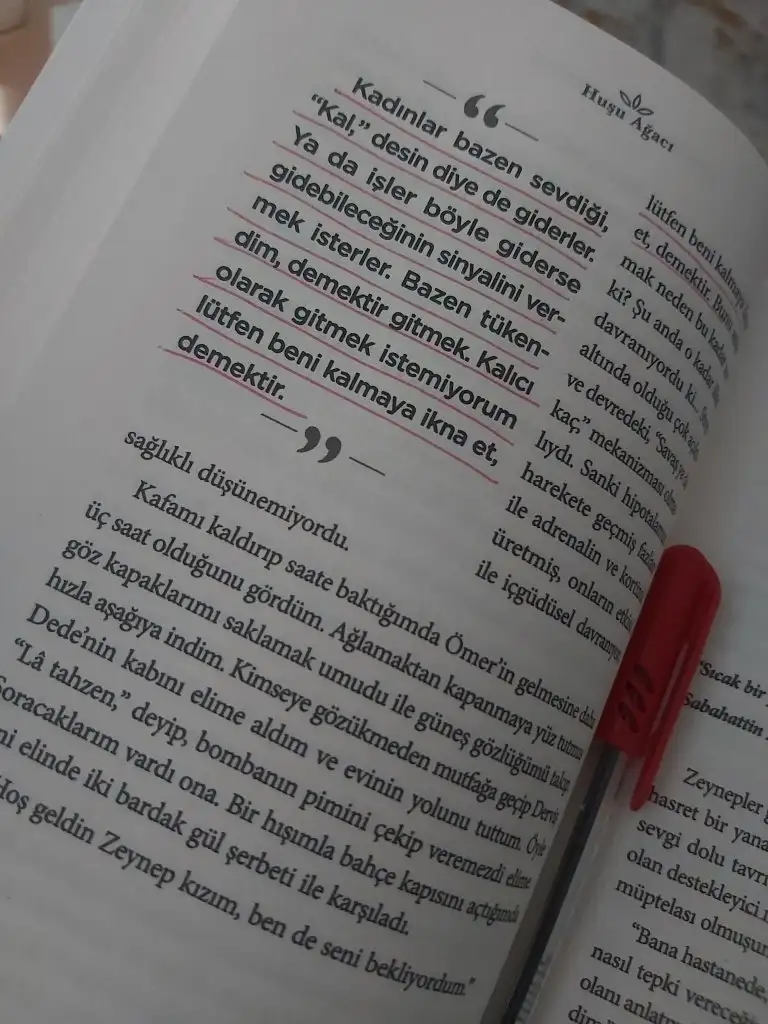 Huşu Ağacı
“
Kadınlar bazen sevdiği,
“Kal,” desin diye de giderler.
Ya da işler böyle giderse
gidebileceğinin sinyalini ver-
mek isterler. Bazen tüken-
dim, demektir gitmek. Kalıcı
olarak gitmek istemiyorum
lütfen beni kalmaya ikna et,
demektir.
”
lütfen beni kalmaya
et, demektir. Bunu
mak neden bu kadar
ki? Şu anda o kadar
davranıyordu ki...
altında olduğu çok
ve devredeki, “Savaş ya da
kaç,” mekanizması
lıydı. Sanki
harekete geçmiş
ile adrenalin ve
üretmiş, onların
ile içgüdüsel
sağlıklı düşünemiyordu.
Kafamı kaldırıp saate baktığımda Ömer’in gelmesine daha
üç saat olduğunu gördüm. Ağlamaktan kapanmaya yüz tutmuş
göz kapaklarımı saklamak umudu ile güneş gözlüğümü takıp
hızla aşağıya indim. Kimseye gözükmeden mutfağa geçip Derviş
Dede’nin kabını elime aldım ve evinin yolunu tuttum. Öyle
“Lâ tahzen,” deyip, bombanın pimini çekip veremezdi elime.
Soracaklarım vardı ona. Bir hışımla bahçe kapısını açtığımda
elinde iki bardak gül şerbeti ile karşıladı.
Hoş geldin Zeynep kızım, ben de seni bekliyordum.”
“Sıcak bir
Sabahattin
Zeynepler
hasret bir
sevgi dolu
olan destekleyici
müptelası
“Bana hastanede,
nasıl tepki
olanı